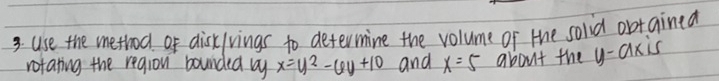 3. Use the method of disk/rings to determine the volume of the solid obtained
rotating the region bounded by x=y²-6y+10 and x=5 about the y-axis